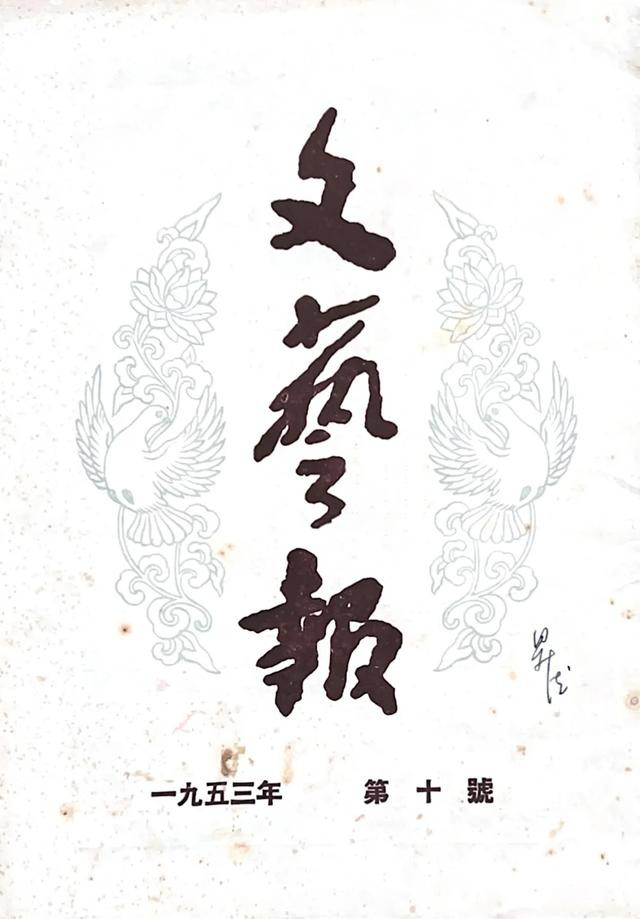 文藝報
一九五三年 第十號